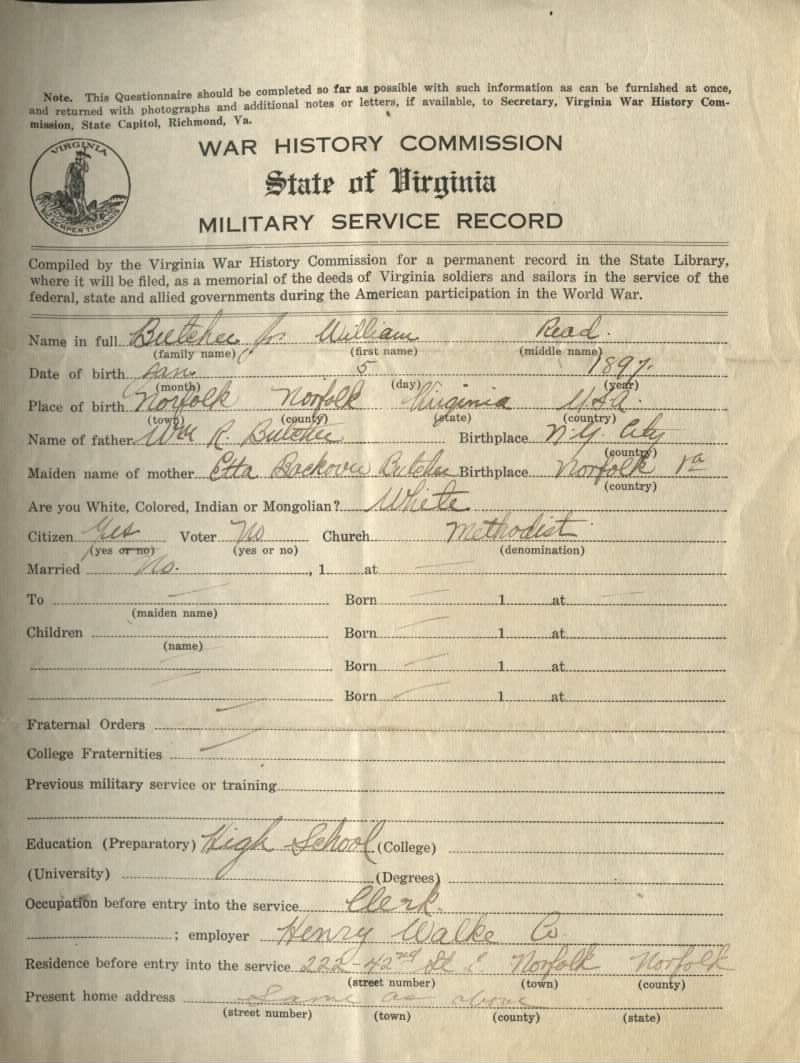 Note. This Questionnaire should be completed so far as possible with such information as can be furnished at once,
and returned with photographs and additional notes or letters, if available, to Secretary, Virginia War History Com-
mission, State Capitol, Richmond, Va.
VIRGINIA
SIC SEMPER TYRANNIS
WAR HISTORY COMMISSION
State of Virginia
MILITARY SERVICE RECORD
Compiled by the Virginia War History Commission for a permanent record in the State Library,
where it will be filed, as a memorial of the deeds of Virginia soldiers and sailors in the service of the
federal, state and allied governments during the American participation in the World War.
Name in full Butcher Jr William Read.
(family name) (first name) (middle name)
Date of birth Jan. 5 1897.
(month) (day) (year)
Place of birth Norfolk Norfolk Virginia USA.
(town) (county) (state) (country)
Name of father Wm R. Butcher Birthplace N.Y. City
(country)
Maiden name of mother Etta Butcher Birthplace Norfolk Va
(country)
Are you White, Colored, Indian or Mongolian? White
Citizen Yes Voter No Church Methodist
(yes or no) (yes or no) (denomination)
Married No. , 1 at
To Born 1 at
(maiden name)
Children Born 1 at
(name)
Born 1 at
Born 1 at
Fraternal Orders
College Fraternities
Previous military service or training
Education (Preparatory) High School (College)
(University) (Degrees)
Occupation before entry into the service Clerk.
; employer Henry Walke Co
Residence before entry into the service 222-42nd St Norfolk Norfolk
(street number) (town) (county)
Present home address Same as above
(street number) (town) (county) (state)